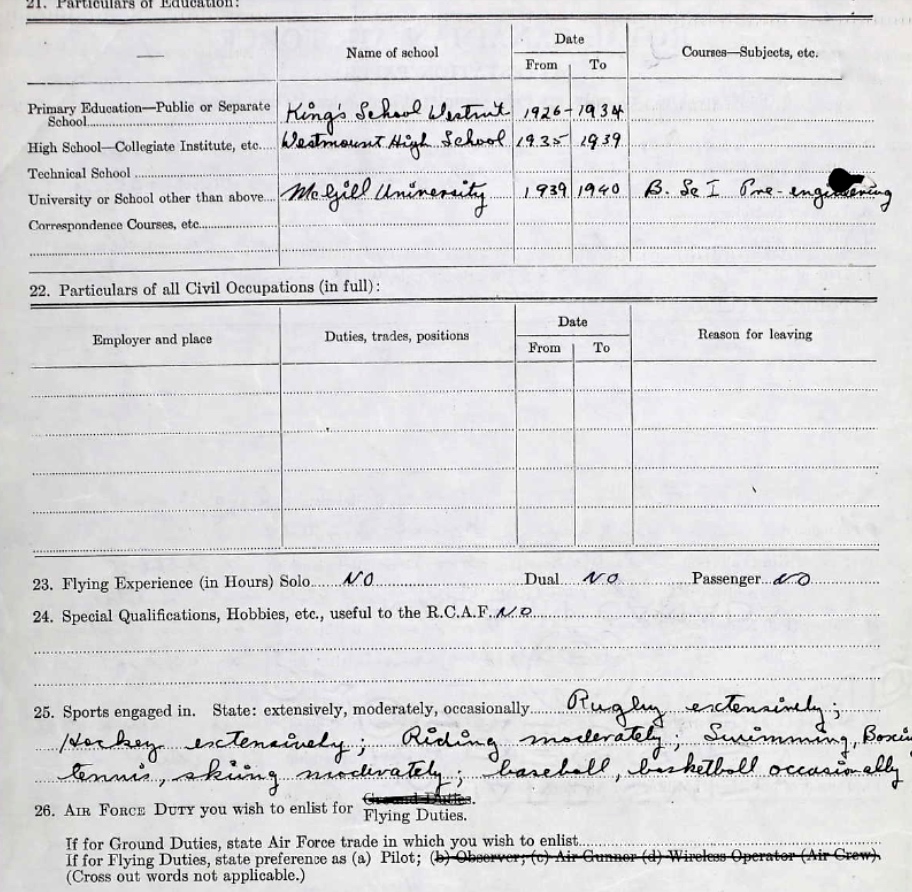 21. Particulars of Education:
Name of school Date Courses—Subjects, etc.
From To
Primary Education—Public or Separate
School King's School Westmt 1926-1934
High School—Collegiate Institute, etc. Westmount High School 1935 1939
Technical School
University or School other than above McGill University 1939 1940 B. Sc I Pre-engineering
Correspondence Courses, etc.
22. Particulars of all Civil Occupations (in full):
Employer and place Duties, trades, positions Date Reason for leaving
From To
23. Flying Experience (in Hours) Solo NO Dual NO Passenger NO
24. Special Qualifications, Hobbies, etc., useful to the R.C.A.F. NO
25. Sports engaged in. State: extensively, moderately, occasionally Rugby extensively;
Hockey extensively; Riding moderately; Swimming, Boxin
tennis, skiing moderately; baseball, basketball occasionally
26. AIR FORCE DUTY you wish to enlist for Ground Duties.
Flying Duties.
If for Ground Duties, state Air Force trade in which you wish to enlist
If for Flying Duties, state preference as (a) Pilot; (b) Observer; (c) Air Gunner (d) Wireless Operator (Air Crew).
(Cross out words not applicable.)